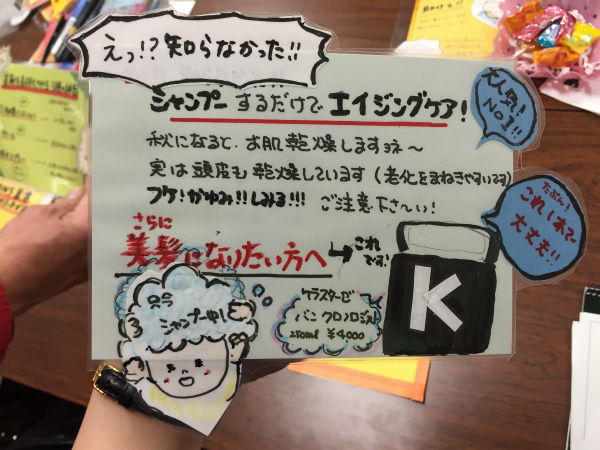 えっ!?知らなかった!!
シャンプーするだけでエイジングケア!
大人気!
NO.1!!
秋になると、お肌乾燥しますョネ〜
実は頭皮も乾燥しています(老化をまねきやすいです)
フケ!かゆみ!!しみる!!!ご注意下さ〜い!
さらに
美髪になりたい方へ→これです!
たぷん♪
これ1本で
大丈夫!!
只今
シャンプー中!
ケラスターゼ
バン クロノロジスト
250ml ¥4,000
K